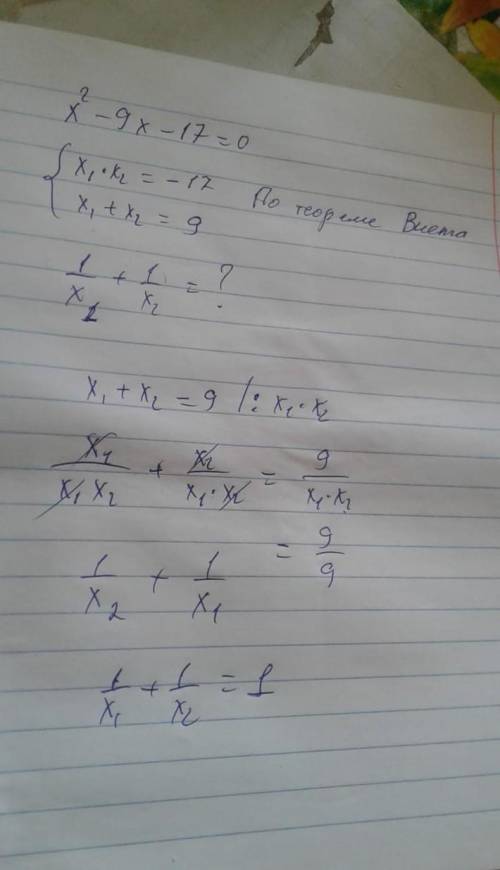 x² - 9x - 17 = 0
{ x₁ · x₂ = -17 По теореме Виета
x₁ + x₂ = 9
1/x₁ + 1/x₂ = ?
x₁ + x₂ = 9 /: x₁ · x₂
x₁/(x₁ x₂) + x₂/(x₁ · x₂) = 9/(x₁ · x₂)
1/x₂ + 1/x₁ = 9/9
1/x₁ + 1/x₂ = 1